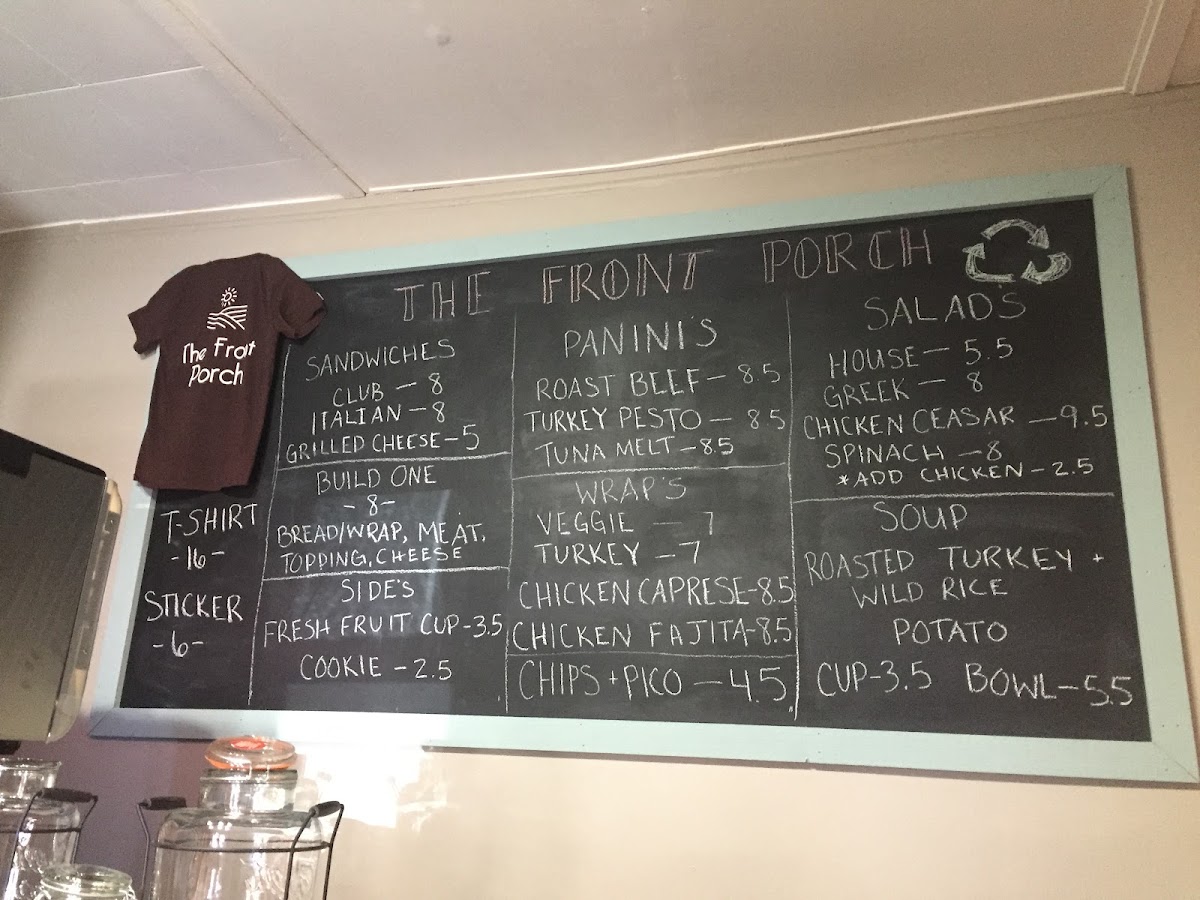 THE FRONT PORCH
The Front
Porch
T-SHIRT
-16-
STICKER
-6-
SANDWICHES
CLUB - 8
ITALIAN - 8
GRILLED CHEESE - 5
BUILD ONE
- 8 -
BREAD/WRAP, MEAT,
TOPPING, CHEESE
SIDE'S
FRESH FRUIT CUP - 3.5
COOKIE - 2.5
PANINI'S
ROAST BEEF - 8.5
TURKEY PESTO - 8.5
TUNA MELT - 8.5
WRAP'S
VEGGIE - 7
TURKEY - 7
CHICKEN CAPRESE - 8.5
CHICKEN FAJITA - 8.5
CHIPS + PICO - 4.5
SALAD'S
HOUSE - 5.5
GREEK - 8
CHICKEN CEASAR - 9.5
SPINACH - 8
*ADD CHICKEN - 2.5
SOUP
ROASTED TURKEY +
WILD RICE
POTATO
CUP - 3.5 BOWL - 5.5